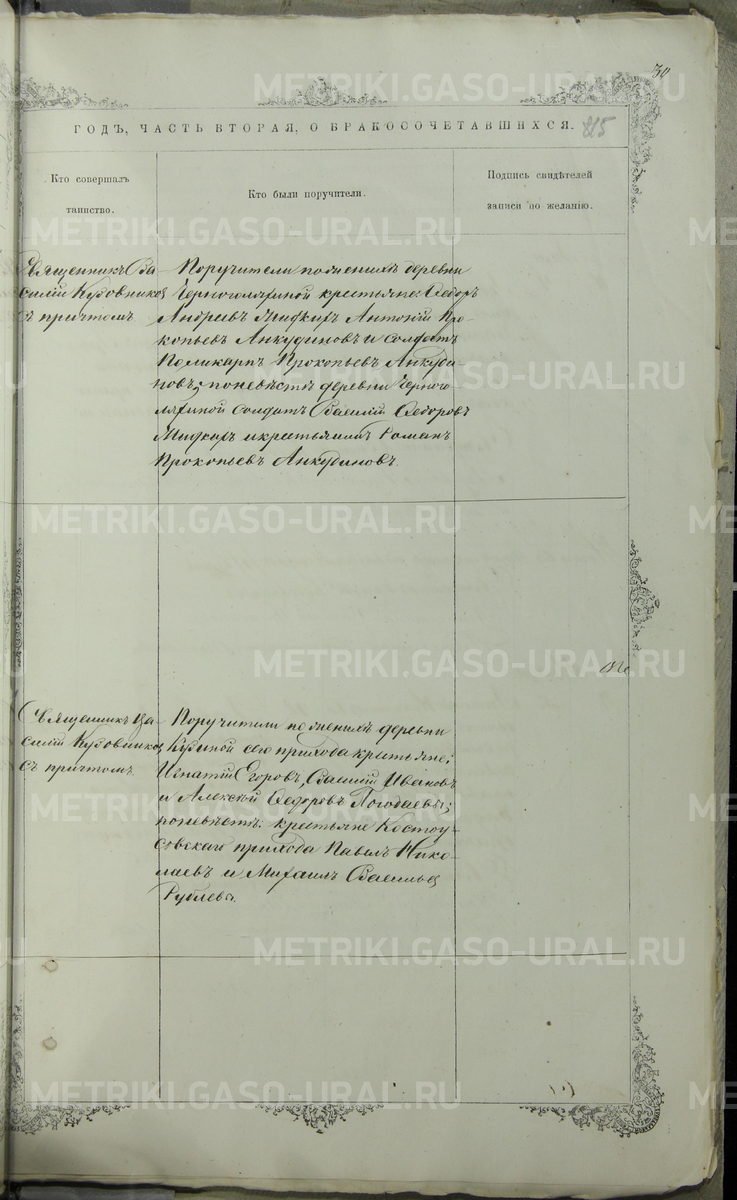 30
ГОДЪ, ЧАСТЬ ВТОРАЯ, О БРАКОСОЧЕТАВШИХСЯ.
115
Кто совершалъ
таинство.
Кто были поручители.
Подпись свидѣтелей
записи по желанію.
Священникъ Ва-
силій Кудовниковъ
съ причтомъ.
Поручители по женихѣ деревни
Черноголяхиной крестьяне: Ѳедоръ
Андреевъ Антоній Про-
копьевъ Анкудиновъ и солдатъ
Поликарпъ Прокопьевъ Анкуди-
новъ; по невѣстѣ деревни Черного-
ляхиной солдатъ Василій Ѳедоровъ
и крестьянинъ Романъ
Прокопьевъ Анкудиновъ.
Священникъ Ва-
силій Кудовниковъ
съ причтомъ.
Поручители по женихѣ деревни
сего прихода крестьяне:
Игнатій Егоровъ, Василій Ивановъ
и Алексѣй Ѳедоровъ Погодаевы;
по невѣстѣ: крестьяне Костоу-
совскаго прихода Павелъ Нико-
лаевъ и Михаилъ Васильевъ
Рублевы.
METRIKI.GASO-URAL.RU